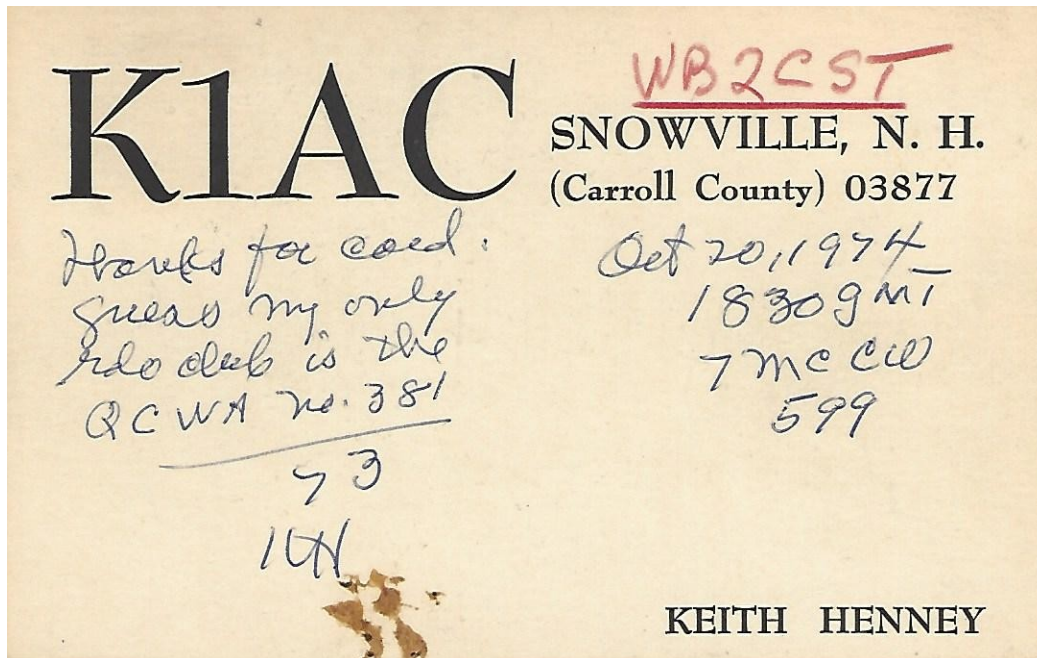 K1AC
WB2CST
SNOWVILLE, N. H.
(Carroll County) 03877
Thanks for card.
Guess my only
rdo club is the
QCWA no. 381
73
KH
Oct 20, 1974
1830 gmT
7 mc CW
599
KEITH HENNEY